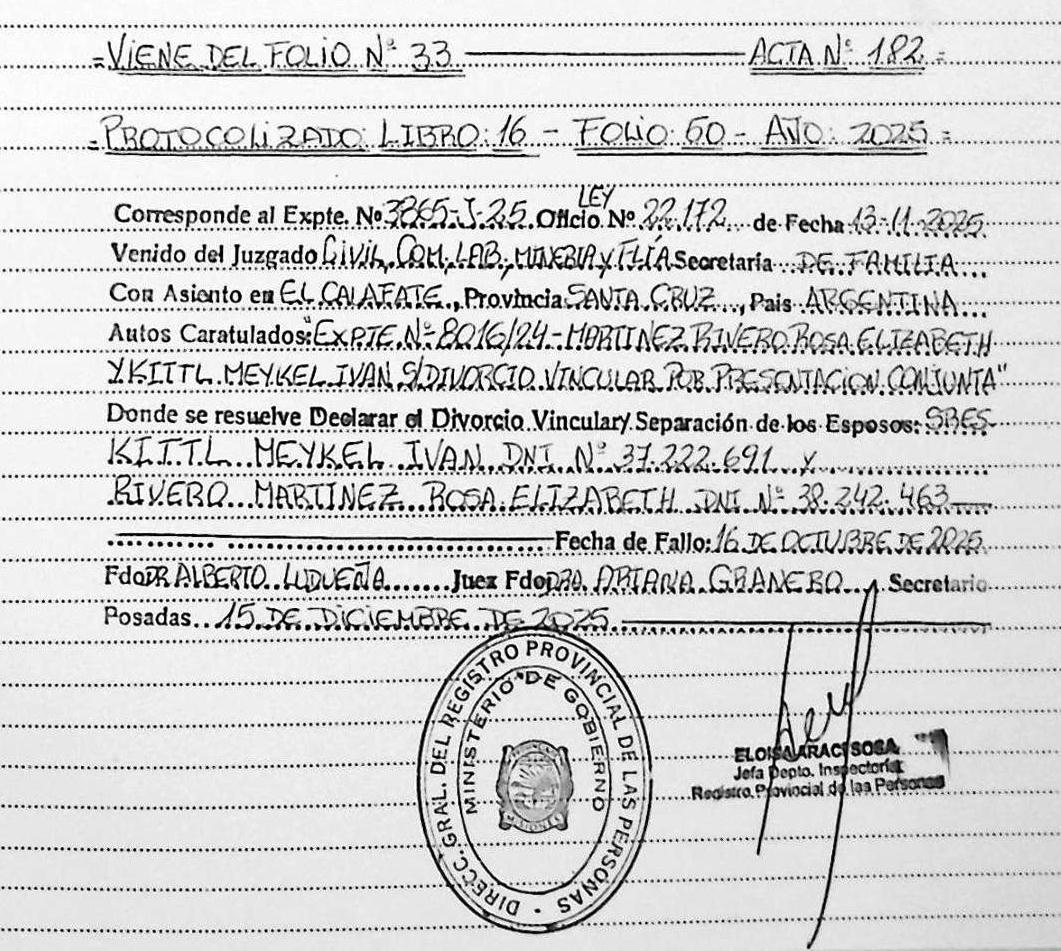 =VIENE DEL FOLIO Nº 33 ACTA Nº 182=
=PROTOCOLIZADO: LIBRO: 16 - FOLIO: 60 - AÑO: 2025=
LEY
Corresponde al Expte. Nº 3865-J-25. Oficio Nº 22.172 de Fecha 13-11-2025
Venido del Juzgado CIVIL, COM, LAB, MINERIA Y FLÍA Secretaría DE FAMILIA
Con Asiento en EL CALAFATE, Provincia SANTA CRUZ, Pais ARGENTINA
Autos Caratulados: "EXPTE Nº 8016/24 - MARTINEZ RIVERO ROSA ELIZABETH
Y KITTL MEYKEL IVAN S/DIVORCIO VINCULAR POR PRESENTACION CONJUNTA"
Donde se resuelve Declarar el Divorcio Vincular y Separación de los Esposos: SRES
KITTL MEYKEL IVAN DNI Nº 37.222.691 y
RIVERO MARTINEZ ROSA ELIZABETH DNI Nº 38.242.463
Fecha de Fallo: 16 DE OCTUBRE DE 2025
Fdo DR ALBERTO LUDUEÑA Juez Fdo DRA. ARIANA GRANERO Secretario
Posadas 15 DE DICIEMBRE DE 2025
DIRECC. GRAL. DEL REGISTRO PROVINCIAL DE LAS PERSONAS
MINISTERIO DE GOBIERNO
MISIONES
ELOISA ARACI SOSA
Jefa Depto. Inspectoría
Registro Provicial de las Personas